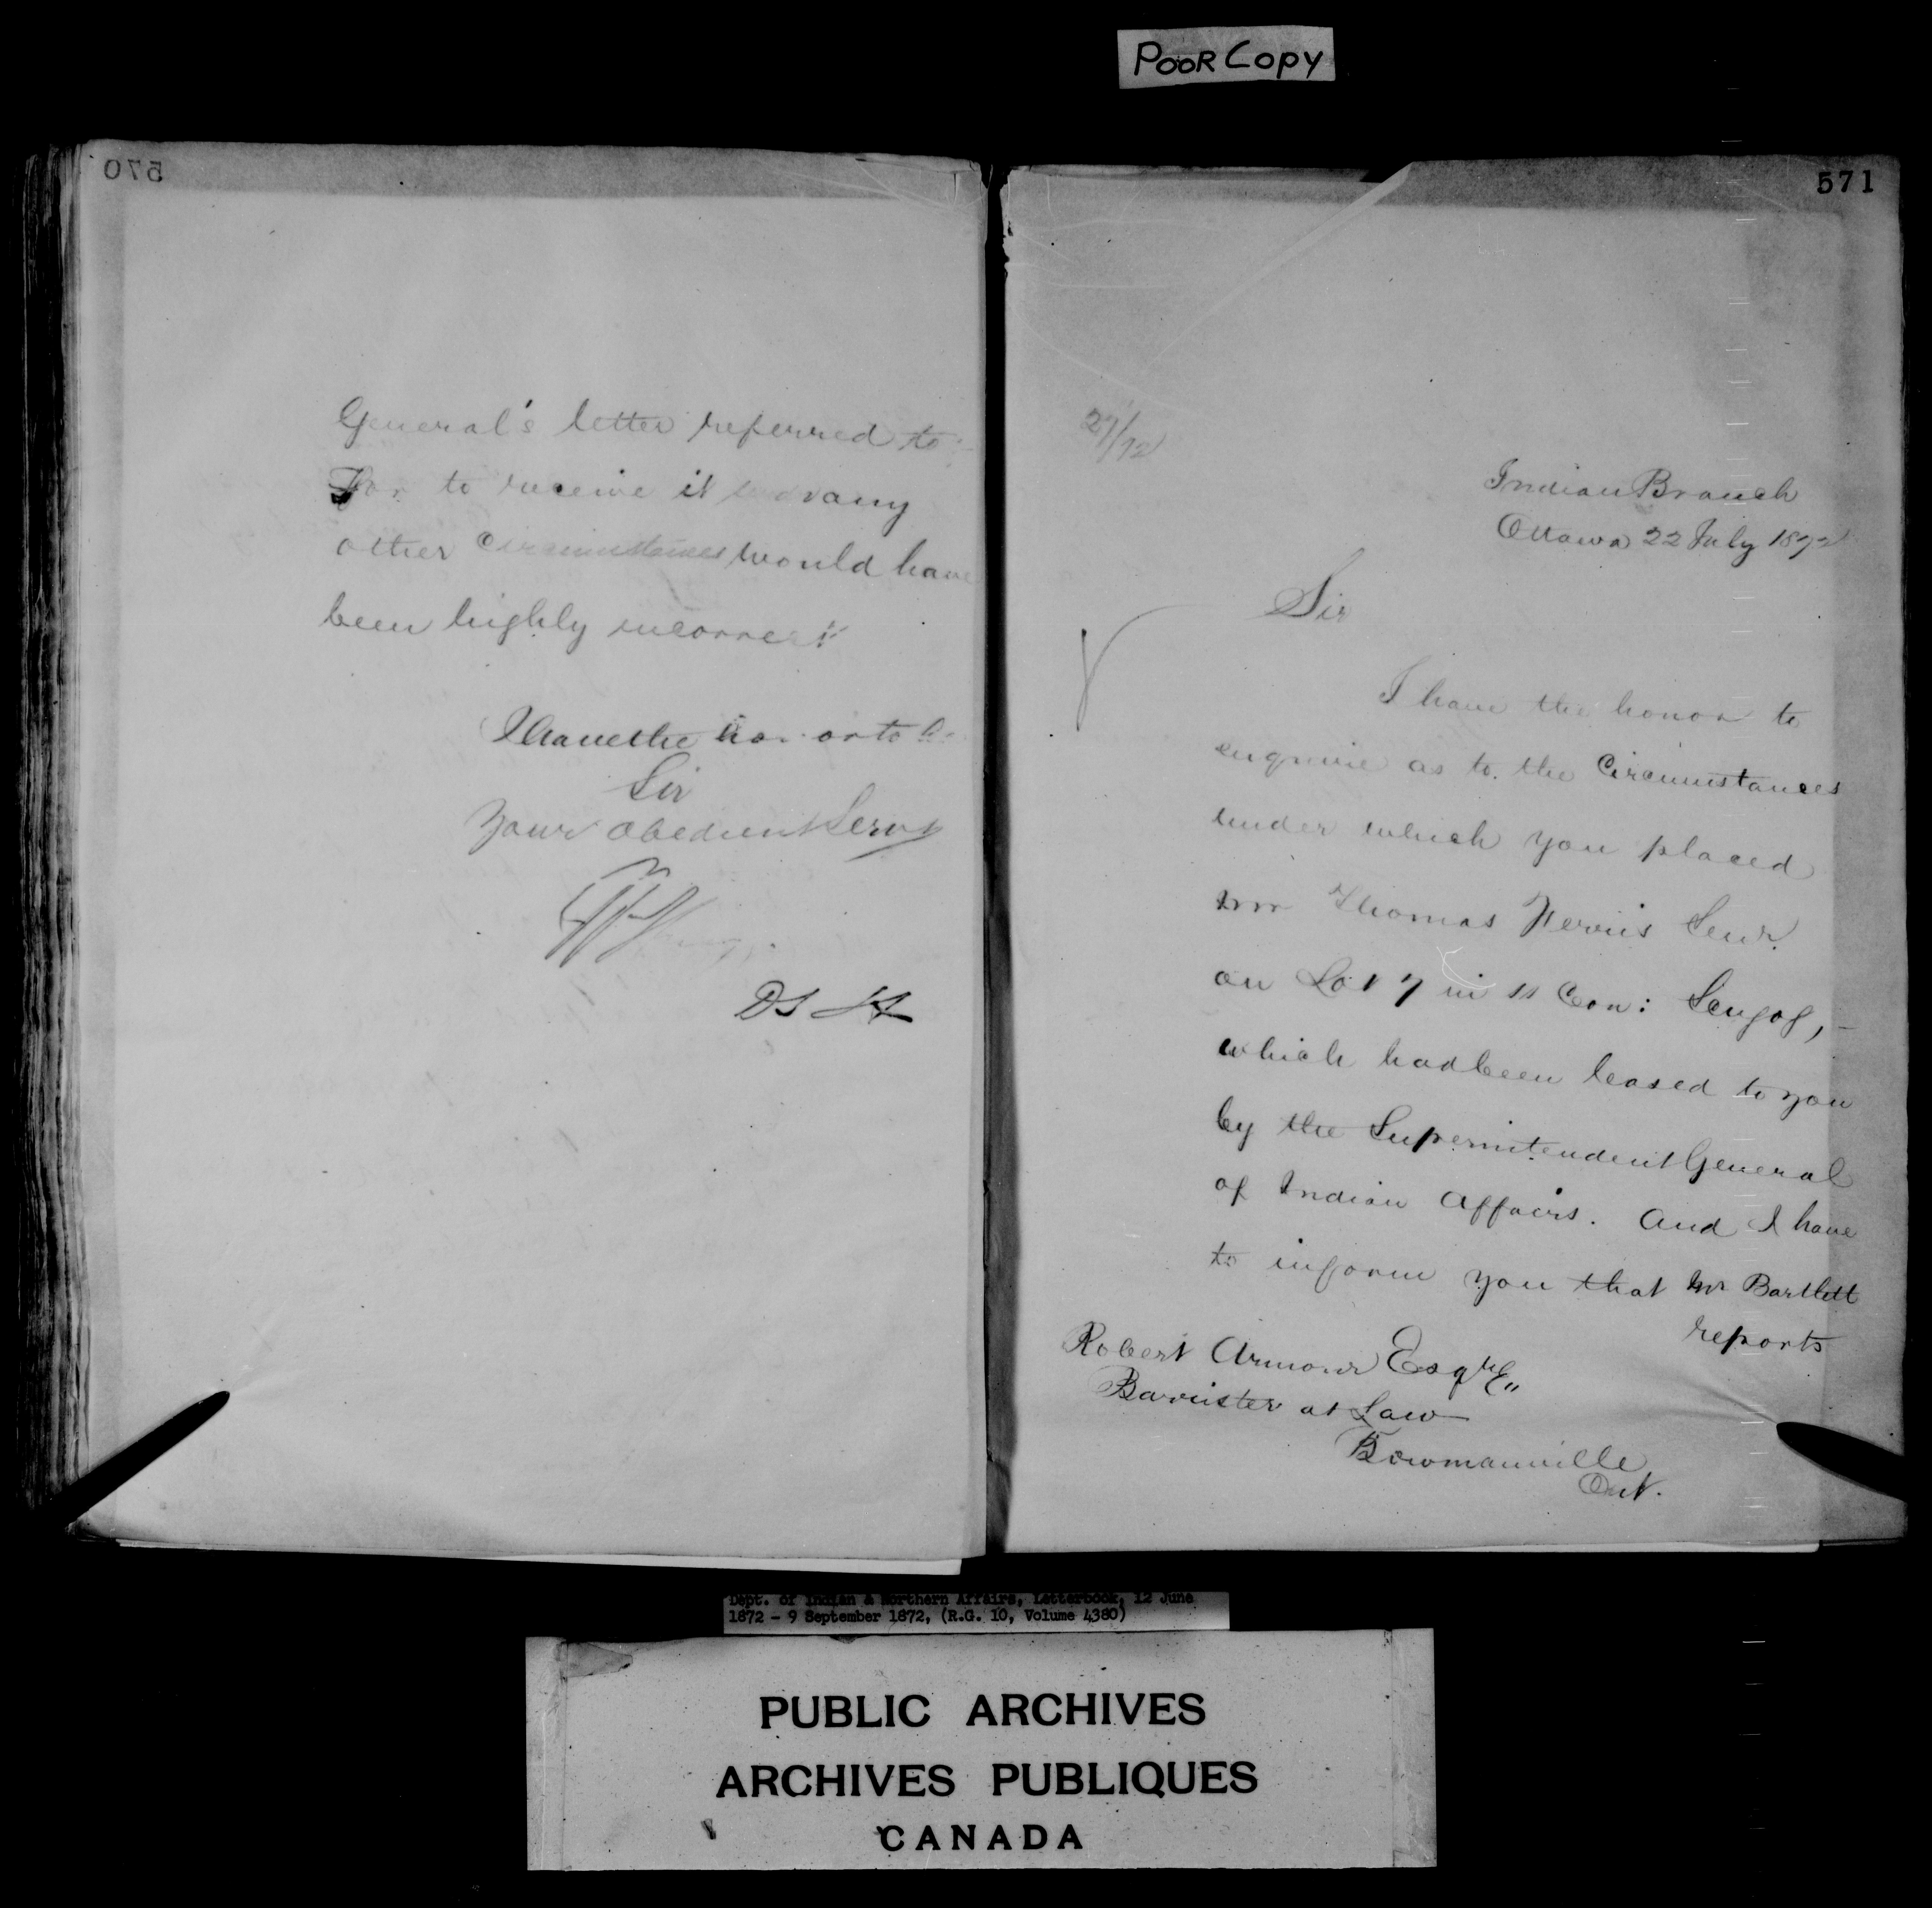 POOR Copy
570
General's letter referred to
For to receive it under any
other circumstances would have
been highly incorrect
I have the honor to be
Sir
Your obedient Servt
DS
571
27/72
Indian Branch
Ottawa 22 July 1872
Sir
I have the honor to
enquire as to the Circumstances
under which you placed
Mr Thomas Senr.
on Lot 7 in 11 Con: Scugog,
which had been leased to you
by the Superintendent General
of Indian Affairs. And I have
to inform you that Mr Bartlett
reports
Robert Armour Esqre
Barrister at Law
Bowmanville
Ont.
Dept. of Indian & Northern Affairs, Letterbook, 12 June
1872 - 9 September 1872, (R.G. 10, Volume 4380)
PUBLIC ARCHIVES
ARCHIVES PUBLIQUES
CANADA